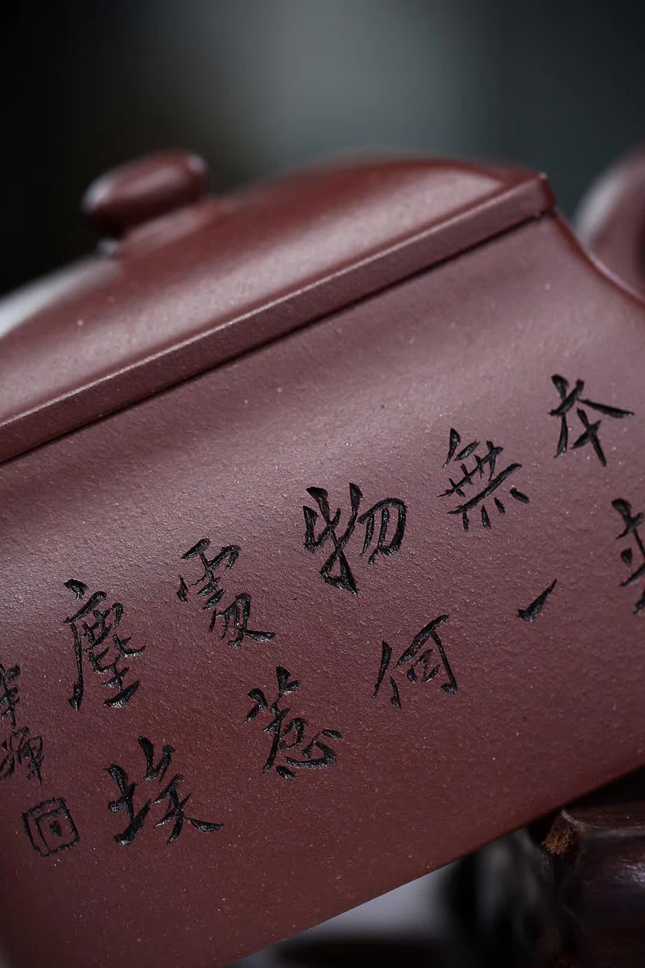 本
無一
物何
處惹
塵埃